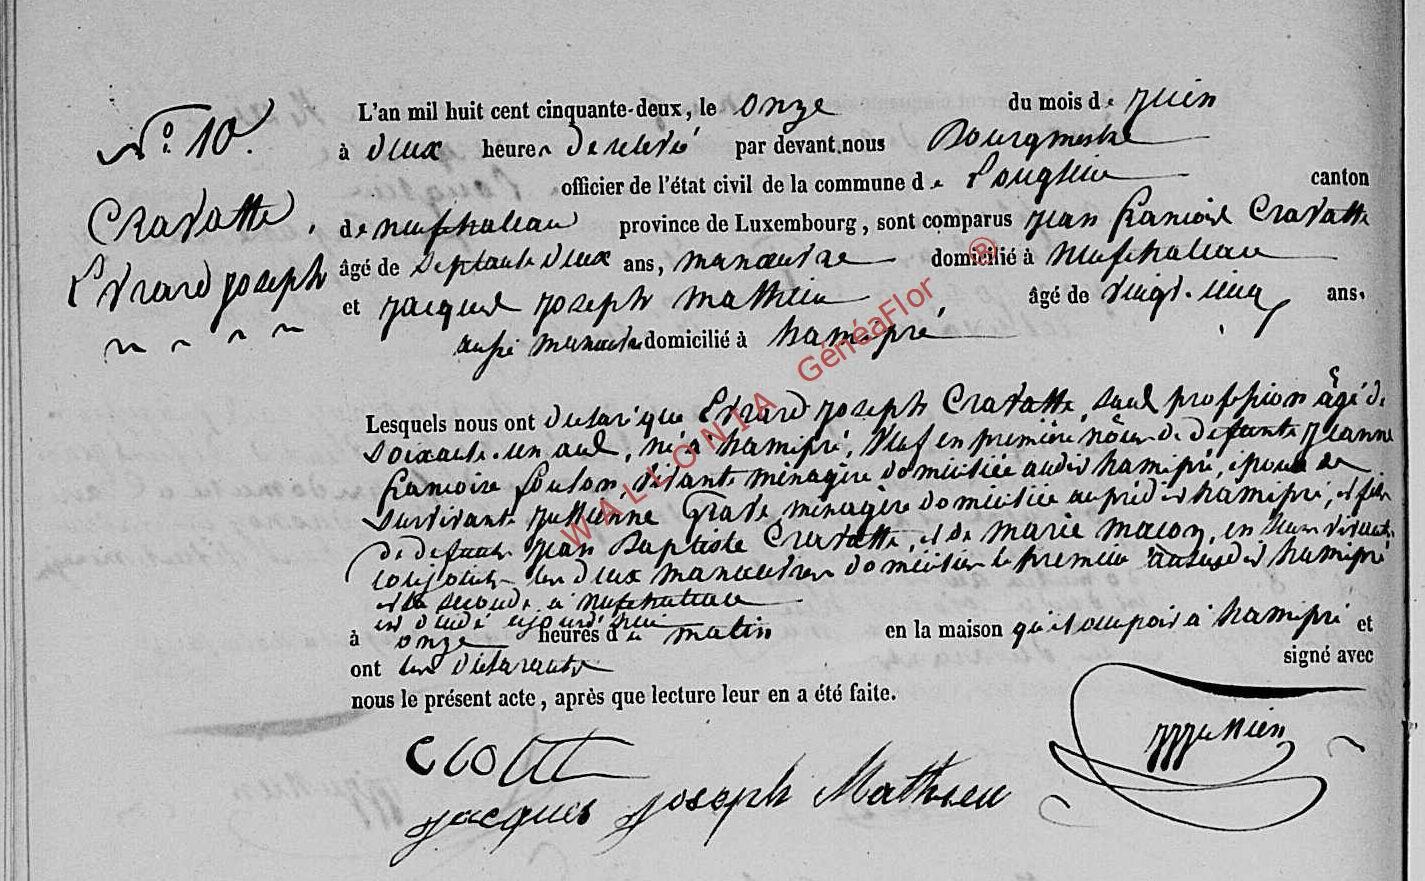 N.° 10.
Cravatte,
Evrard joseph
L'an mil huit cent cinquante-deux, le onze du mois de juin
à deux heures de relevé par devant nous Bourgmestre
officier de l'état civil de la commune de Longlier canton
de neufchateau province de Luxembourg, sont comparus jean francois Cravatte
âgé de septante deux ans, manœuvre domicilié à neufchateau
et jacques joseph mathieu âgé de vingt-cinq ans,
aussi manœuvre domicilié à hamipré
Lesquels nous ont declaré que Evrard joseph Cravatte, sans profession âgé de
soixante-un ans, né à hamipré, veuf en première nôces de defunte jeanne
francoise, vivante ménagère domiciliée audit hamipré, époux de
survivante ménagère domiciliée au prédit hamipré, et fils
de defunts jean Baptiste Cravatte, et de marie macon, en leur vivant
conjoints les deux manœuvres domiciliés le premier audit hamipré
et la seconde à neufchateau
est décédé aujourd'hui
à onze heures du matin en la maison qu'il occupoit à hamipré et
ont les déclarants signé avec
nous le présent acte, après que lecture leur en a été faite.
Jacques Joseph Mathieu
WALLONIA GénéaFlor ®